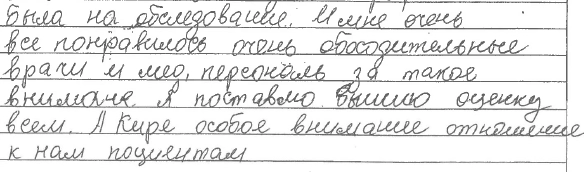 была на обследование. И мне очень
все понравилось очень обходительные
врачи и мед, персональ за такое
внимане. Я поставлю вышию оценку
всем. А Кире особое внимание отношение
к нам поциентам